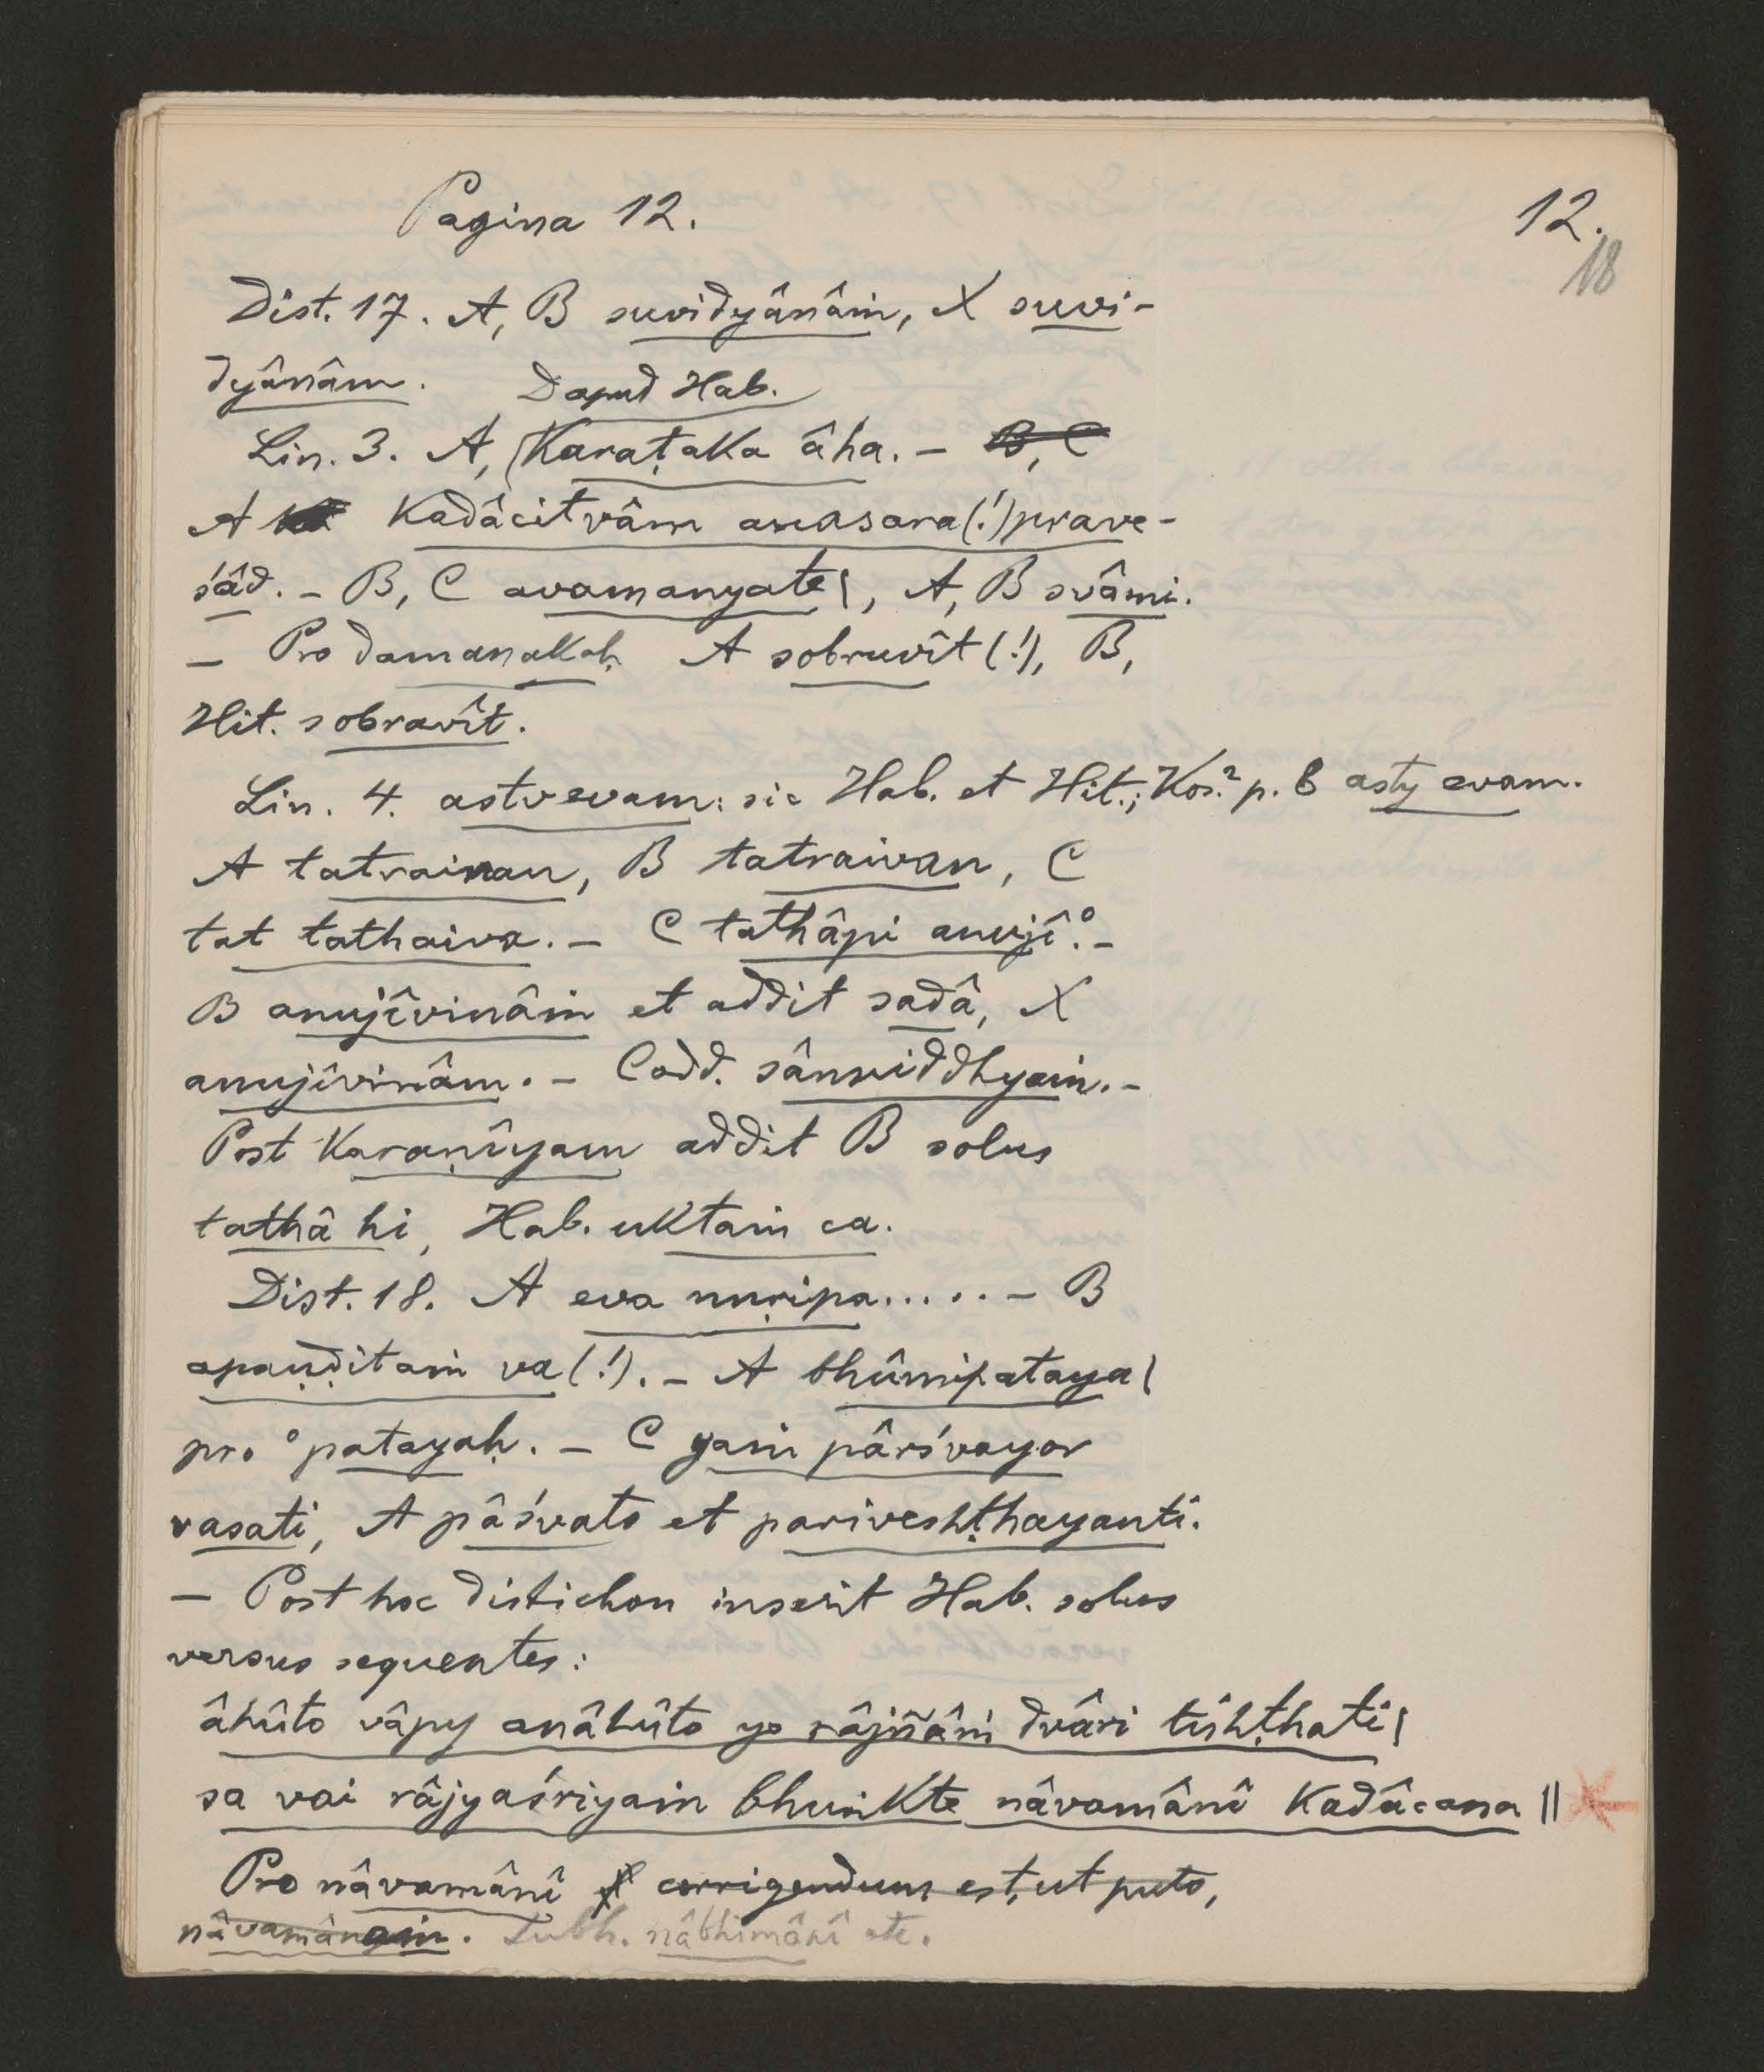 Pagina 12.
12.
18
Dist. 17. A, B suvidyânâṁ, X suvi-
dyânâm. D apud Hab.
Lin. 3. A, Karaṭaka âha. – B, C
A kadâcit tvâm anasara(!)prave-
śâd. – B, C avamanyate|, A, B svâmi.
– Pro damanakaḥ A sobruvît(!), B,
Hit. sobravît.
Lin. 4. astvevam: sic Hab. et Hit.; Kos.² p. 6 asty evam.
A tatrainan, B tatraivan, C
tat tathaiva. – C tathâpi anujî°. –
B anujîvinâṁ et addit sadâ, X
anujîvinâm. – Codd. sânniddhyaṁ. –
Post karaṇîyam addit B solus
tathâ hi, Hab. uktaṁ ca.
Dist. 18. A eva nnṛipa..... – B
apaṇḍitaṁ va(!). – A bhûmipataya|
pro °patayaḥ. – C yaṁ pârśvayor
vasati, A pâśvato et pariveshṭhayanti.
– Post hoc distichon inserit Hab. solus
versus sequentes:
âhûto vâpy anâhûto yo râjñâṁ dvâri tishṭhati|
sa vai râjyaśriyaṁ bhuṅkte nâvamânî kadâcana ||
Pro nâvamânî corrigendum est, ut puto,
nâvamânaṁ. Subh. nâbhimânî ete.